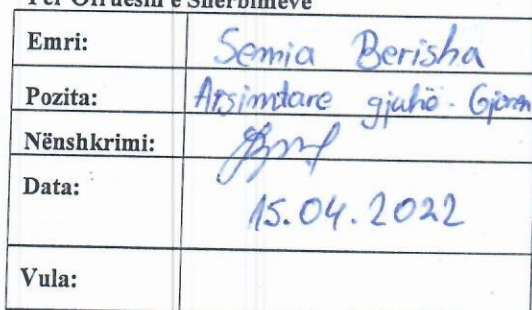 Për Ofruesin e Shërbimeve
Emri: Semia Berisha
Pozita: Arsimtare gjuhë. Gjerm
Nënshkrimi:
Data: 15.04.2022
Vula: